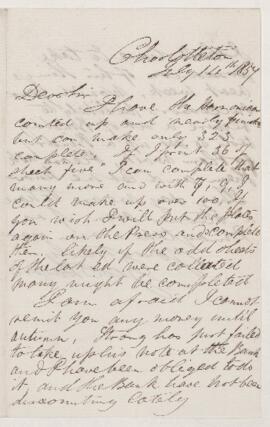 Charlottetown
July 14th 1857
Dear Sir
I have the Harmonicon
counted up and nearly finished
but can make only 323
complete. If I print 36 of
sheet five I can complete that
many more and with
could make up over 100, if
you wish I will put the plates
again on the Press and complete
them, likely if the odd sheets
of the last ed were collected
many might be completed
I am afraid I cannot
remit you any money until
autumn, Strong has just failed
to take up his note at the Bank
and I have been obliged to do
it, and the Bank have not been
discounting lately